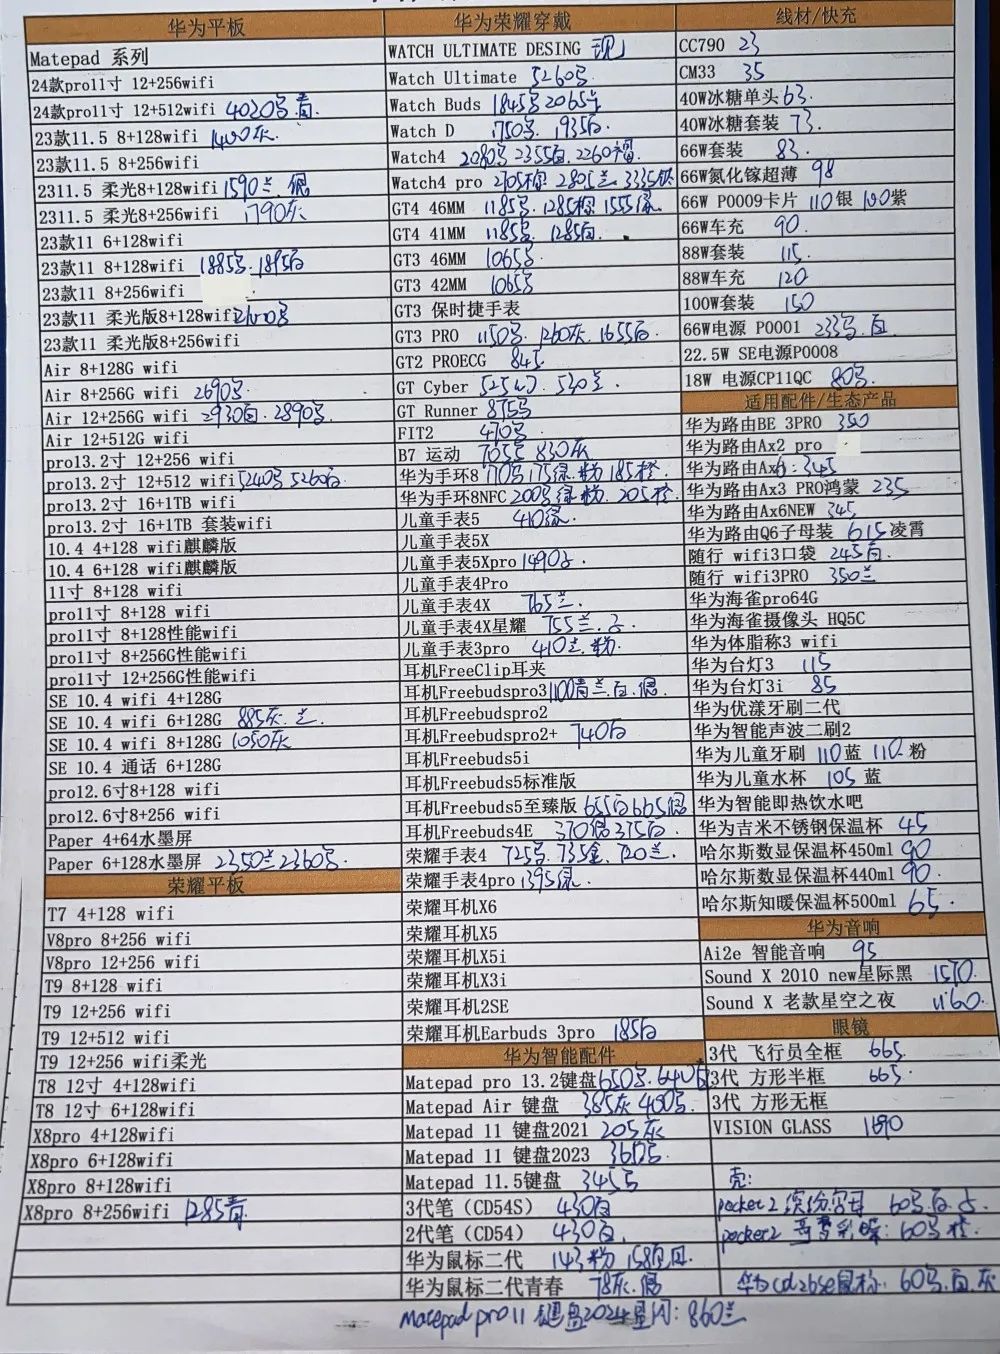 华为平板
Matepad 系列
24款pro11寸 12+256wifi
24款pro11寸 12+512wifi 4020 青
23款11.5 8+128wifi 1400灰
23款11.5 8+256wifi
2311.5 柔光8+128wifi 1590兰
2311.5 柔光8+256wifi 1790灰
23款11 6+128wifi
23款11 8+128wifi 1885 1895白
23款11 8+256wifi
23款11 柔光版8+128wifi
23款11 柔光版8+256wifi
Air 8+128G wifi
Air 8+256G wifi 2690
Air 12+256G wifi 2930白. 2890
Air 12+512G wifi
pro13.2寸 12+256 wifi
pro13.2寸 12+512 wifi 5240 5260白
pro13.2寸 16+1TB wifi
pro13.2寸 16+1TB 套装wifi
10.4 4+128 wifi麒麟版
10.4 6+128 wifi麒麟版
11寸 8+128 wifi
pro11寸 8+128 wifi
pro11寸 8+128性能wifi
pro11寸 8+256G性能wifi
pro11寸 12+256G性能wifi
SE 10.4 wifi 4+128G
SE 10.4 wifi 6+128G 885灰. 兰
SE 10.4 wifi 8+128G 1050灰
SE 10.4 通话 6+128G
pro12.6寸8+128 wifi
pro12.6寸8+256 wifi
Paper 4+64水墨屏
Paper 6+128水墨屏 2350兰2360
荣耀平板
T7 4+128 wifi
V8pro 8+256 wifi
V8pro 12+256 wifi
T9 8+128 wifi
T9 12+256 wifi
T9 12+512 wifi
T9 12+256 wifi柔光
T8 12寸 4+128wifi
T8 12寸 6+128wifi
X8pro 4+128wifi
X8pro 6+128wifi
X8pro 8+128wifi
X8pro 8+256wifi 1285青
华为荣耀穿戴
WATCH ULTIMATE DESING 现
Watch Ultimate 5260
Watch Buds 1845 2065
Watch D 1750 1935白
Watch4 2080 2355白. 2260
Watch4 pro 2705棕 2805兰. 3335钛
GT4 46MM 1185 1285棕 1555绿
GT4 41MM 1185 1285白.
GT3 46MM 1065
GT3 42MM 1065
GT3 保时捷手表
GT3 PRO 1150 1260灰. 1655白
GT2 PROECG 845
GT Cyber 525 530兰.
GT Runner 875
FIT2 470
B7 运动 705 830灰
华为手环8 170 175绿.粉 185橙
华为手环8NFC 200 绿 粉. 205橙
儿童手表5 410绿.
儿童手表5X
儿童手表5Xpro 1490
儿童手表4Pro
儿童手表4X 765兰.
儿童手表4X星耀 755兰.
儿童手表3pro 410兰.粉.
耳机FreeClip耳夹
耳机Freebudspro3 1100青兰.白.
耳机Freebudspro2
耳机Freebudspro2+ 740白
耳机Freebuds5i
耳机Freebuds5标准版
耳机Freebuds5至臻版 655白665
耳机Freebuds4E 370 375白.
荣耀手表4 725. 735金. 720兰.
荣耀手表4pro 1395绿.
荣耀耳机X6
荣耀耳机X5
荣耀耳机X5i
荣耀耳机X3i
荣耀耳机2SE
荣耀耳机Earbuds 3pro 185白
华为智能配件
Matepad pro 13.2键盘 650. 640
Matepad Air 键盘 385灰 400.
Matepad 11 键盘2021 205灰
Matepad 11 键盘2023 360
Matepad 11.5键盘 345
3代笔（CD54S） 430白
2代笔（CD54） 430白.
华为鼠标二代 143粉 158
华为鼠标二代青春 78灰.
Matepad pro11 键盘2024星闪: 860兰
线材/快充
CC790 23
CM33 35
40W冰糖单头 63.
40W冰糖套装 73.
66W套装 83.
66W氮化镓超薄 98
66W P0009卡片 110银 100紫
66W车充 90.
88W套装 115.
88W车充 120
100W套装 150
66W电源 P0001 233 白.
22.5W SE电源P0008
18W 电源CP11QC 80.
适用配件/生态产品
华为路由BE 3PRO 350
华为路由Ax2 pro
华为路由Ax6: 345
华为路由Ax3 PRO鸿蒙 235
华为路由Ax6NEW 345
华为路由Q6子母装 615凌霄
随行 wifi3口袋 245白.
随行 wifi3PRO 350兰
华为海雀pro64G
华为海雀摄像头 HQ5C
华为体脂称3 wifi
华为台灯3 115
华为台灯3i 85
华为优漾牙刷二代
华为智能声波二刷2
华为儿童牙刷 110蓝 110粉
华为儿童水杯 105 蓝
华为智能即热饮水吧
华为吉米不锈钢保温杯 45
哈尔斯数显保温杯450ml 90
哈尔斯数显保温杯440ml 90.
哈尔斯知暖保温杯500ml 65.
华为音响
Ai2e 智能音响 95
Sound X 2010 new星际黑 1570.
Sound X 老款星空之夜 1160.
眼镜
3代 飞行员全框 665.
3代 方形半框 665.
3代 方形无框
VISION GLASS 1690
壳:
pocket2 缤纷字母 60 白.
pocket2 蝶: 60 橙.
华为cd26se鼠标: 60.白.灰